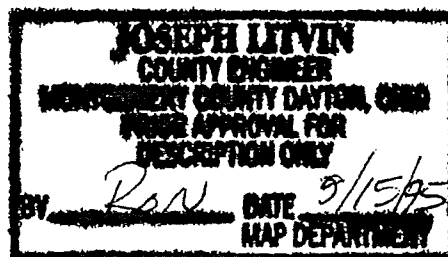 JOSEPH LITVIN
COUNTY ENGINEER
MONTGOMERY COUNTY DAYTON, OHIO
PRIOR APPROVAL FOR
DESCRIPTION ONLY
BY Ron DATE 9/15/95
MAP DEPARTMENT